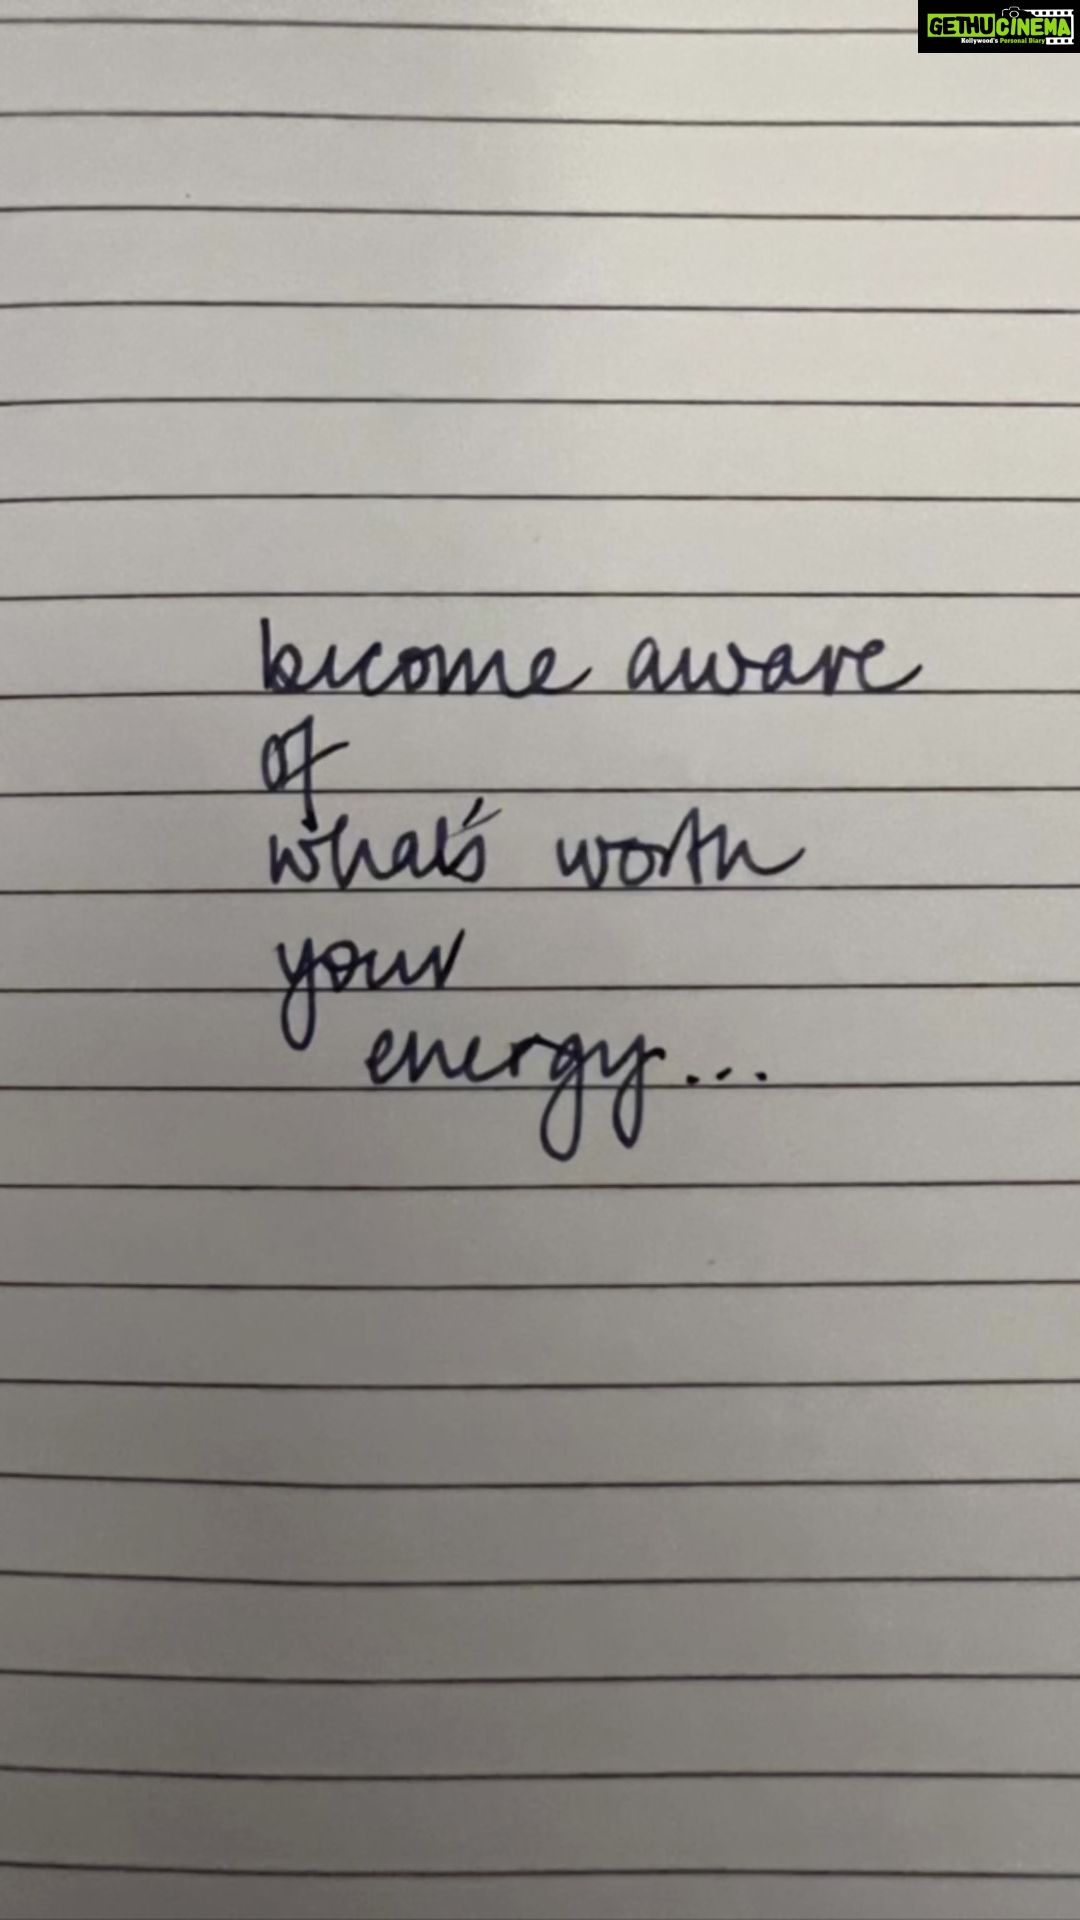 GETHUCINEMA
Kollywood's Personal Diary
become aware
of
what's worth
your
energy...